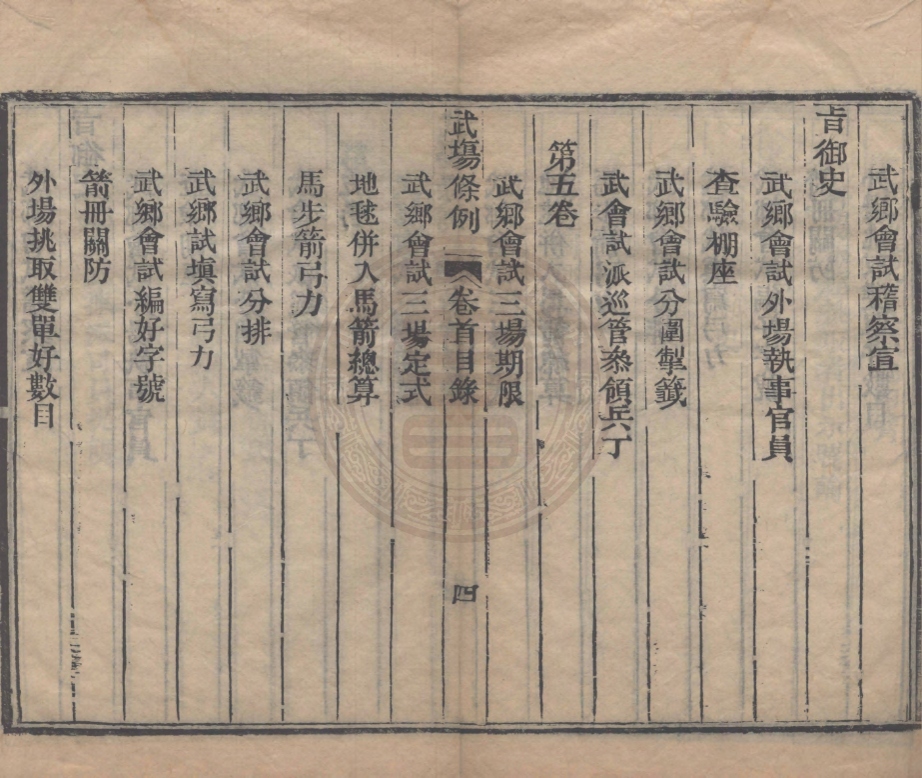 武鄉會試稽察宣
旨御史
武鄉會試外場執事官員
查驗棚座
武鄉會試分圍掣籤
武會試派巡管叅領兵丁
第五卷
武鄉會試三場期限
武場條例 卷首目錄 四
武鄉會試三場定式
地毬併入馬箭總算
馬步箭弓力
武鄉會試分排
武鄉試填寫弓力
武鄉會試編好字號
箭冊關防
外場挑取雙單好數目